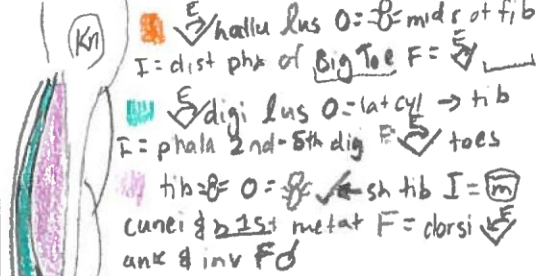 Kn
E hallu lus O= mids of fib
I= dist phx of Big Toe F= E
E digi lus O= lat cyl → tib
I= phala 2nd-5th dig F= E toes
tib O= sh tib I= m
cunei & b 1st metat F= dorsi E
ank & inv F